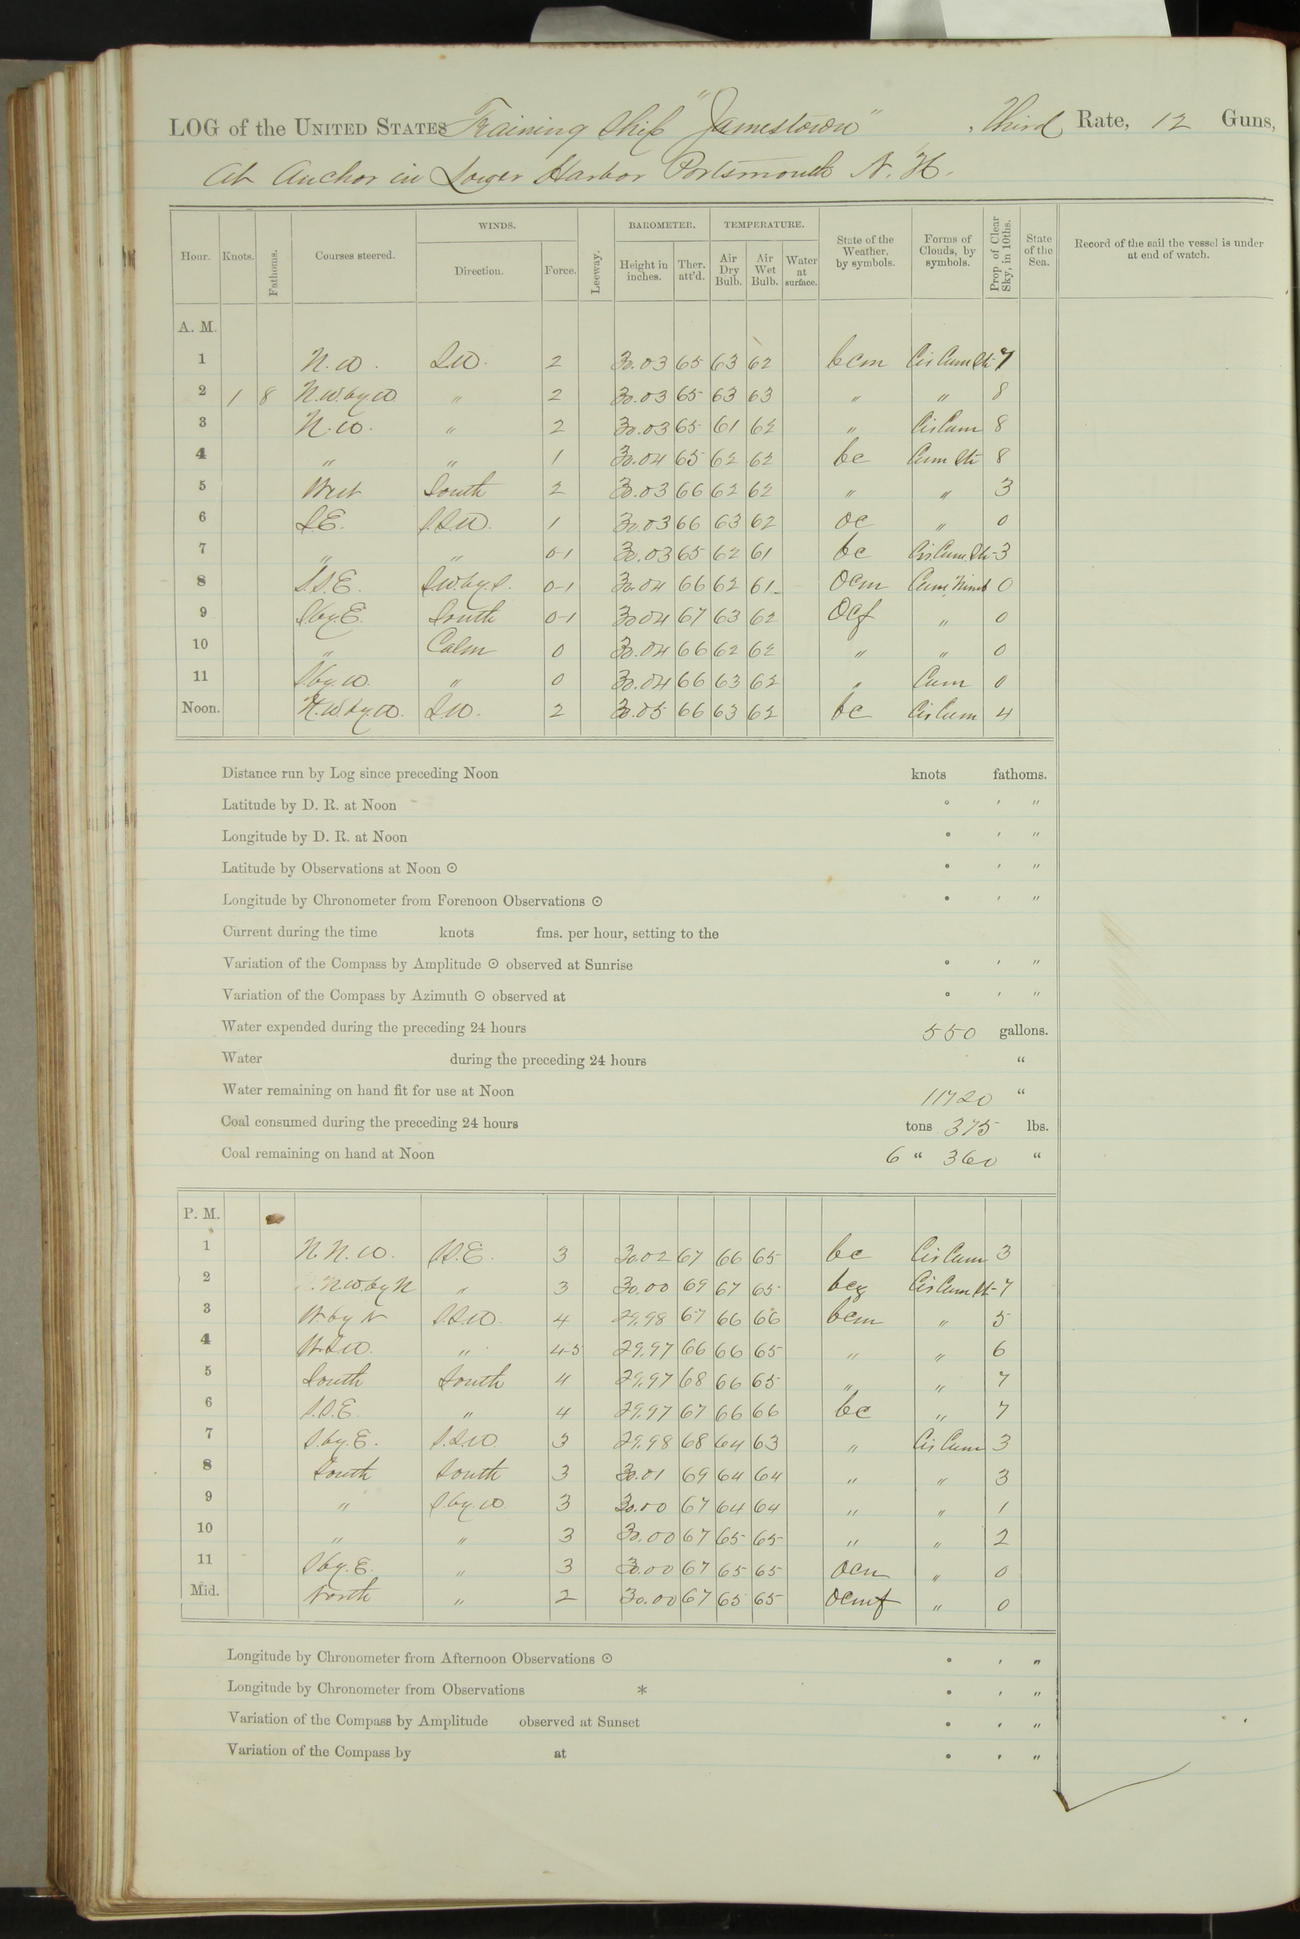 LOG of the UNITED STATES Training Ship "Jamestown", Third Rate, 12 Guns,
At Anchor in Lower Harbor Portsmouth N. H.
Hour. Knots. Fathoms. Courses steered. WINDS. Direction. Force. Leeway. BAROMETER. Height in inches. Ther. att'd. TEMPERATURE. Air Dry Bulb. Air Wet Bulb. Water at surface. State of the Weather, by symbols. Forms of Clouds, by symbols. Prop. of Clear Sky, in 10ths. State of the Sea. Record of the sail the vessel is under at end of watch.
A. M.
1 N.W. S.W. 2 30.03 65 63 62 bcm Cir Cum Str 7
2 1 8 N.W. by W " 2 30.03 65 63 63 " " 8
3 N.W. " 2 30.03 65 61 62 " Cir Cum 8
4 " " 1 30.04 65 62 62 bc Cum Str 8
5 West South 2 30.03 66 62 62 " " 3
6 S.E. S.S.W. 1 30.03 66 63 62 oc " 0
7 " " 0-1 30.03 65 62 61 bc Cir Cum Str 3
8 S.S.E. S.W. by S. 0-1 30.04 66 62 61 ocm Cum Nimb 0
9 S by E. South 0-1 30.04 67 63 62 ocf " 0
10 " Calm 0 30.04 66 62 62 " " 0
11 S by W. " 0 30.04 66 63 62 " Cum 0
Noon. N.W. by W. S.W. 2 30.05 66 63 62 bc Cir Cum 4
Distance run by Log since preceding Noon knots fathoms.
Latitude by D. R. at Noon ° ' "
Longitude by D. R. at Noon ° ' "
Latitude by Observations at Noon ☉ ° ' "
Longitude by Chronometer from Forenoon Observations ☉ ° ' "
Current during the time knots fms. per hour, setting to the
Variation of the Compass by Amplitude ☉ observed at Sunrise ° ' "
Variation of the Compass by Azimuth ☉ observed at ° ' "
Water expended during the preceding 24 hours 550 gallons.
Water during the preceding 24 hours "
Water remaining on hand fit for use at Noon 11720 "
Coal consumed during the preceding 24 hours tons 375 lbs.
Coal remaining on hand at Noon 6 " 360 "
P. M.
1 N.N.W. S.S.E. 3 30.02 67 66 65 bc Cir Cum 3
2 N.W. by N " 3 30.00 69 67 65 Cir Cum St 7
3 W. by N S.S.W. 4 29.98 67 66 66 bcm " 5
4 W.S.W. " 4-5 29.97 66 66 65 " " 6
5 South South 4 29.97 68 66 65 " " 7
6 S.S.E. " 4 29.97 67 66 66 bc " 7
7 S. by E. S.S.W. 3 29.98 68 64 63 " Cir Cum 3
8 South South 3 30.01 69 64 64 " " 3
9 " S by W. 3 30.00 67 64 64 " " 1
10 " " 3 30.00 67 65 65 " " 2
11 S by E. " 3 30.00 67 65 65 ocm " 0
Mid. North " 2 30.00 67 65 65 ocmf " 0
Longitude by Chronometer from Afternoon Observations ☉ ° ' "
Longitude by Chronometer from Observations * ° ' "
Variation of the Compass by Amplitude observed at Sunset ° ' "
Variation of the Compass by at ° ' "